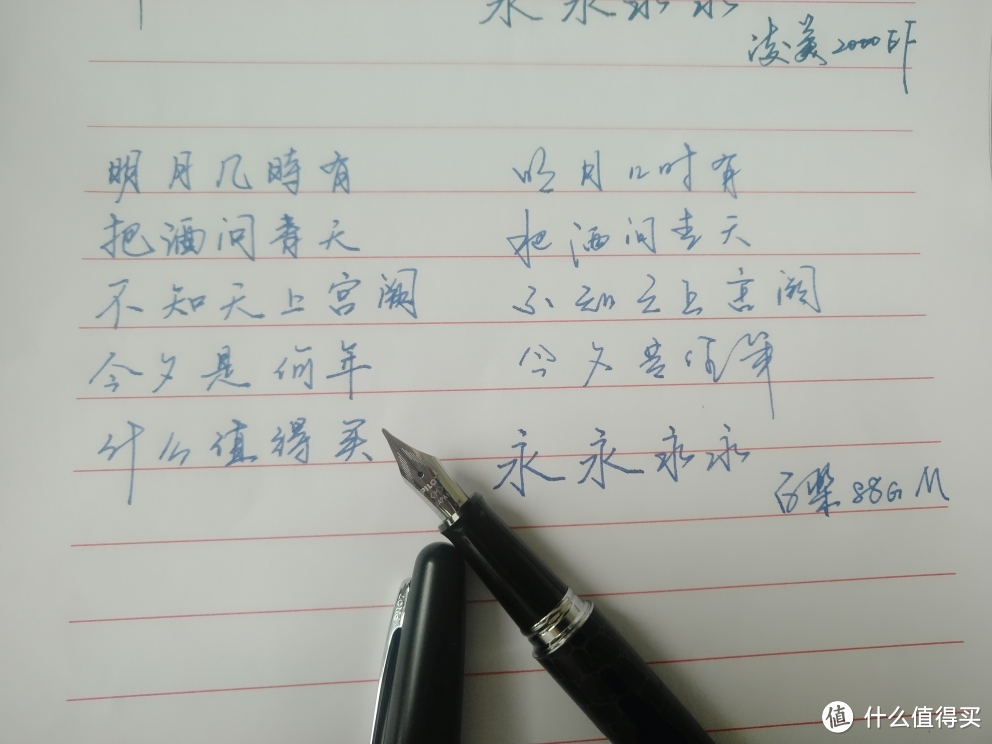 永永永永
凌美2000EF
明月几時有 明月几时有
把酒问青天 把酒问青天
不知天上宫阙 不知天上宫阙
今夕是何年 今夕是何年
什么值得买 永永永永
百乐88G M
PILOT
PILOT
值 什么值得买